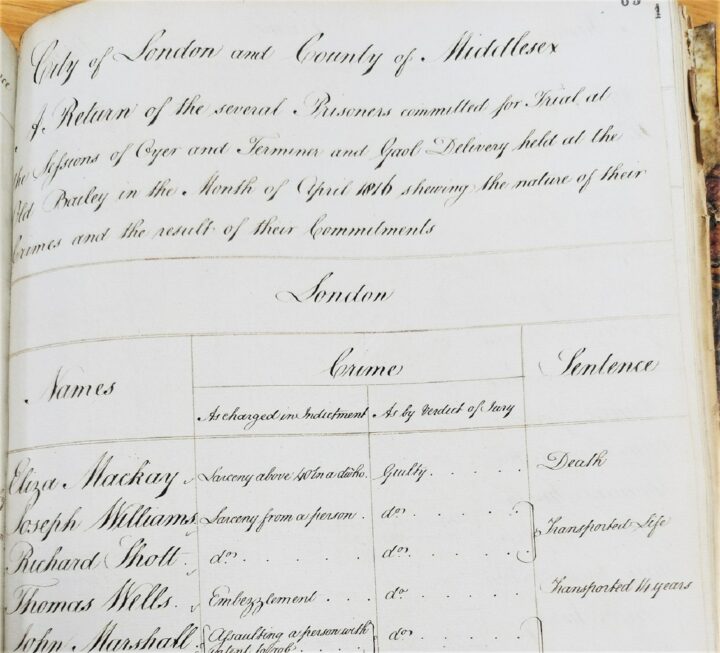 City of London and County of Middlesex
A Return of the several Prisoners committed for Trial at
the Sessions of Oyer and Terminer and Gaol Delivery held at the
Old Bailey in the Month of April 1816 shewing the nature of their
Crimes and the result of their Commitments
London
Names
Crime
Sentence
As charged in Indictment
As by Verdict of Jury
Eliza Mackay Larceny above 40/ in a dwho. Guilty Death
Joseph Williams Larceny from a person do.
Transported Life
Richard Shott do. do.
Thomas Wells Embezzlement do. Transported 14 years
John Marshall Assaulting a person with do.
intent to rob